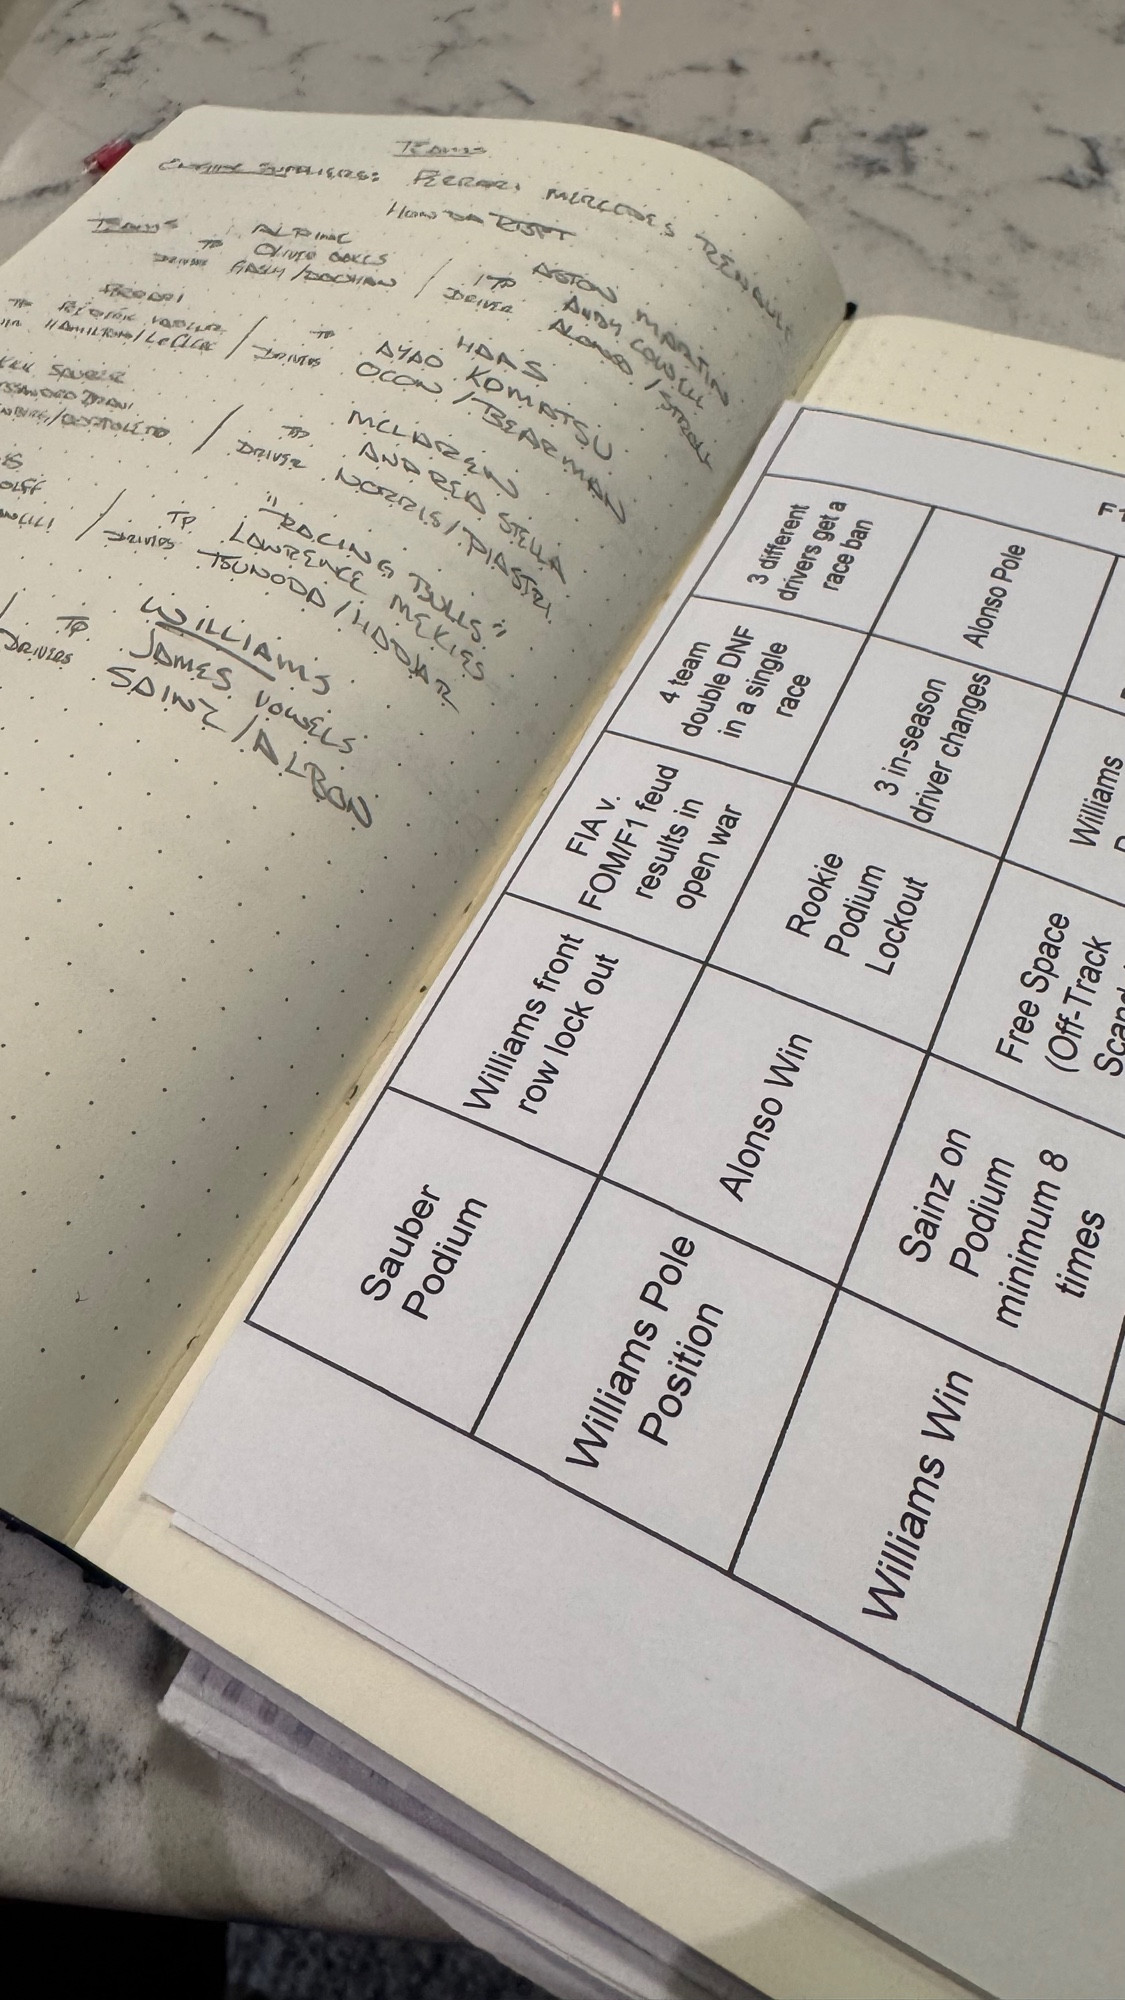 TEAMS
ENGINE SUPPLIERS: FERRARI MERCEDES RENAULT
HONDA RBPT
TEAMS
ALPINE
TP OLIVER OAKES
DRIVERS GASLY/DOOHAN
ASTON MARTIN
TP ANDY COWELL
DRIVER ALONSO/STROLL
FERRARI
TP FREDERIC VASSEUR
HAMILTON/LECLERC
HAAS
TP AYAO KOMATSU
DRIVERS OCON/BEARMAN
SAUBER
MCLAREN
TP ANDREA STELLA
DRIVER NORRIS/PIASTRI
"RACING BULLS"
TP LAWRENCE MEKIES
DRIVERS TSUNODA/HADJAR
WILLIAMS
TP JAMES VOWELS
DRIVERS SAINZ/ALBON
Sauber
Podium
Williams front
row lock out
FIA v.
FOM/F1 feud
results in
open war
4 team
double DNF
in a single
race
3 different
drivers get a
race ban
Williams Pole
Position
Alonso Win
Rookie
Podium
Lockout
3 in-season
driver changes
Alonso Pole
Williams Win
Sainz on
Podium
minimum 8
times
Free Space
(Off-Track
Williams